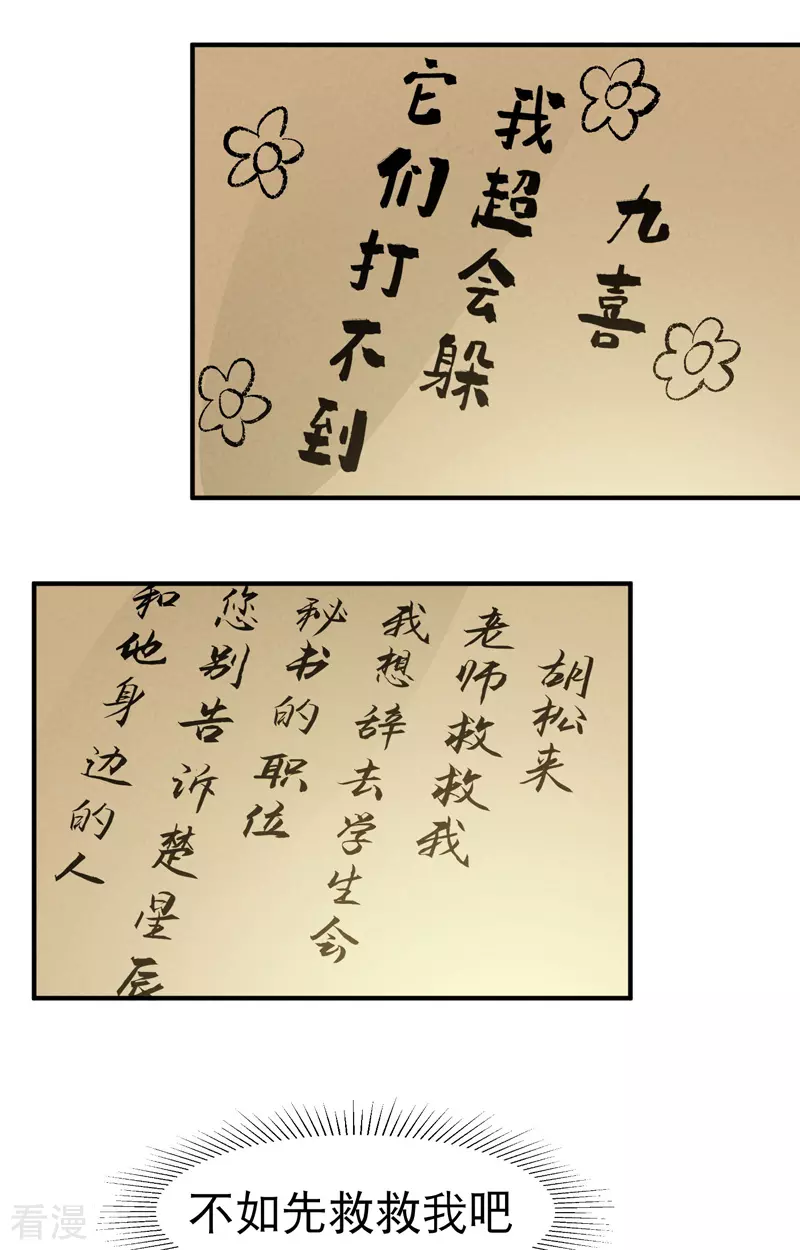 九喜
我超会躲
它们打不到
胡松夹
老师救救我
我想辞去学生会
秘书的职位
您别告诉楚星辰
和他身边的人
不如先救救我吧
看漫